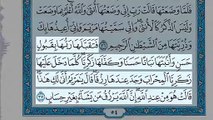 فَلَمَّا وَضَعَتْهَا قَالَتْ رَبِّ إِنِّى وَضَعْتُهَآ أُنثَىٰ وَٱللَّهُ أَعْلَمُ بِمَا وَضَعَتْ
وَلَيْسَ ٱلذَّكَرُ كَٱلْأُنثَىٰ وَإِنِّى سَمَّيْتُهَا مَرْيَمَ وَإِنِّىٓ أُعِيذُهَا بِكَ
وَذُرِّيَّتَهَا مِنَ ٱلشَّيْطَٰنِ ٱلرَّجِيمِ ٣٦ فَتَقَبَّلَهَا رَبُّهَا بِقَبُولٍ
حَسَنٍ وَأَنۢبَتَهَا نَبَاتًا حَسَنًا وَكَفَّلَهَا زَكَرِيَّا كُلَّمَا دَخَلَ عَلَيْهَا
زَكَرِيَّا ٱلْمِحْرَابَ وَجَدَ عِندَهَا رِزْقًا قَالَ يَٰمَرْيَمُ أَنَّىٰ لَكِ هَٰذَا
قَالَتْ هُوَ مِنْ عِندِ ٱللَّهِ إِنَّ ٱللَّهَ يَرْزُقُ مَن يَشَآءُ بِغَيْرِ حِسَابٍ ٣٧
٥٤